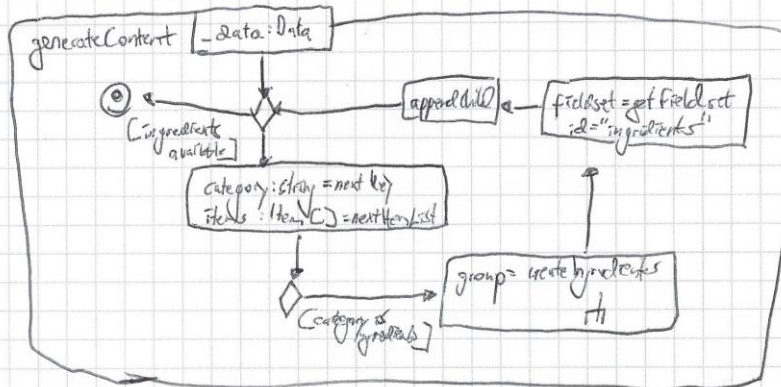 generateContent
_data:Data
[ingredients
available]
appendChild
fieldset = getFieldset
id="ingridients"
category:string = next key
items : Item[] = nextItemList
[category is
Ingredients]
group = createIngredients